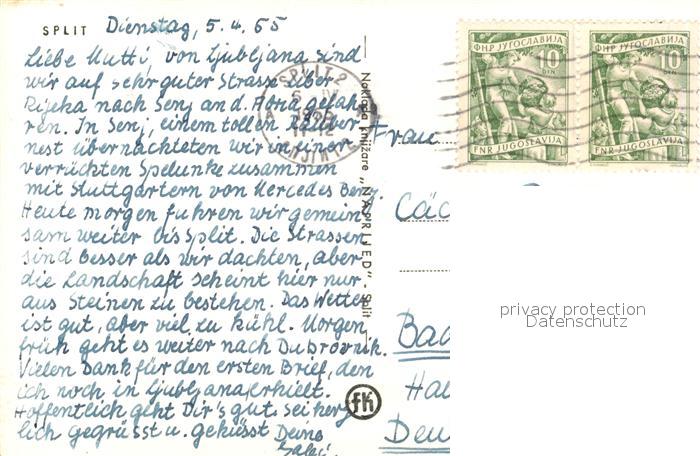 SPLIT Dienstag, 5.4.55
Liebe Mutti, von Ljubljana sind
wir auf sehr guter Strasse über
Rijeka nach Senj an d. Adria gefah
ren. In Senj, einem tollen Räuber
nest übernachteten wir in einer
verrückten Spelunke zusammen
mit Stuttgartern von Mercedes Benz.
Heute morgen fuhren wir gemein
sam weiter bis Split. Die Strassen
sind besser als wir dachten, aber
die Landschaft scheint hier nur
aus Steinen zu bestehen. Das Wetter
ist gut, aber viel zu kühl. Morgen
früh geht es weiter nach Dubrovnik.
Vielen Dank für den ersten Brief, den
ich noch in Ljubljana erhielt.
Hoffentlich geht Dir's gut. Sei herz
lich gegrüsst u. geküsst Deine
Naklada knjižare „NAPRIJED" - Split
fk
SPLIT 2
ФНР ЈУГОСЛАВИЈА
10
DIN
FNR JUGOSLAVIJA
ФНР ЈУГОСЛАВИЈА
10
DIN
FNR JUGOSLAVIJA
Frau
Cäc
Bad
Deu
privacy protection
Datenschutz